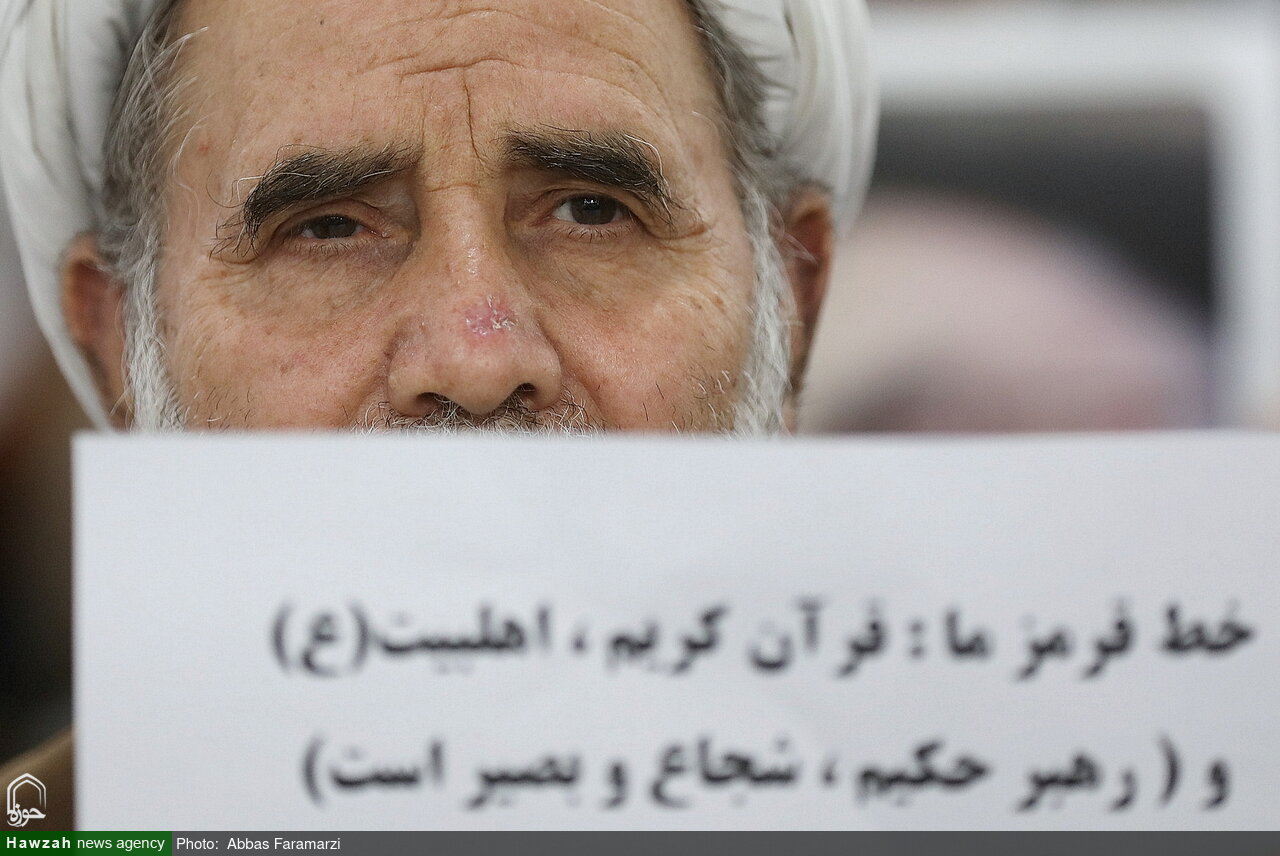 خط قرمز ما : قرآن کریم ، اهلبیت(ع)
و ( رهبر حکیم ، شجاع و بصیر است)
حوزه
Hawzah news agency Photo: Abbas Faramarzi